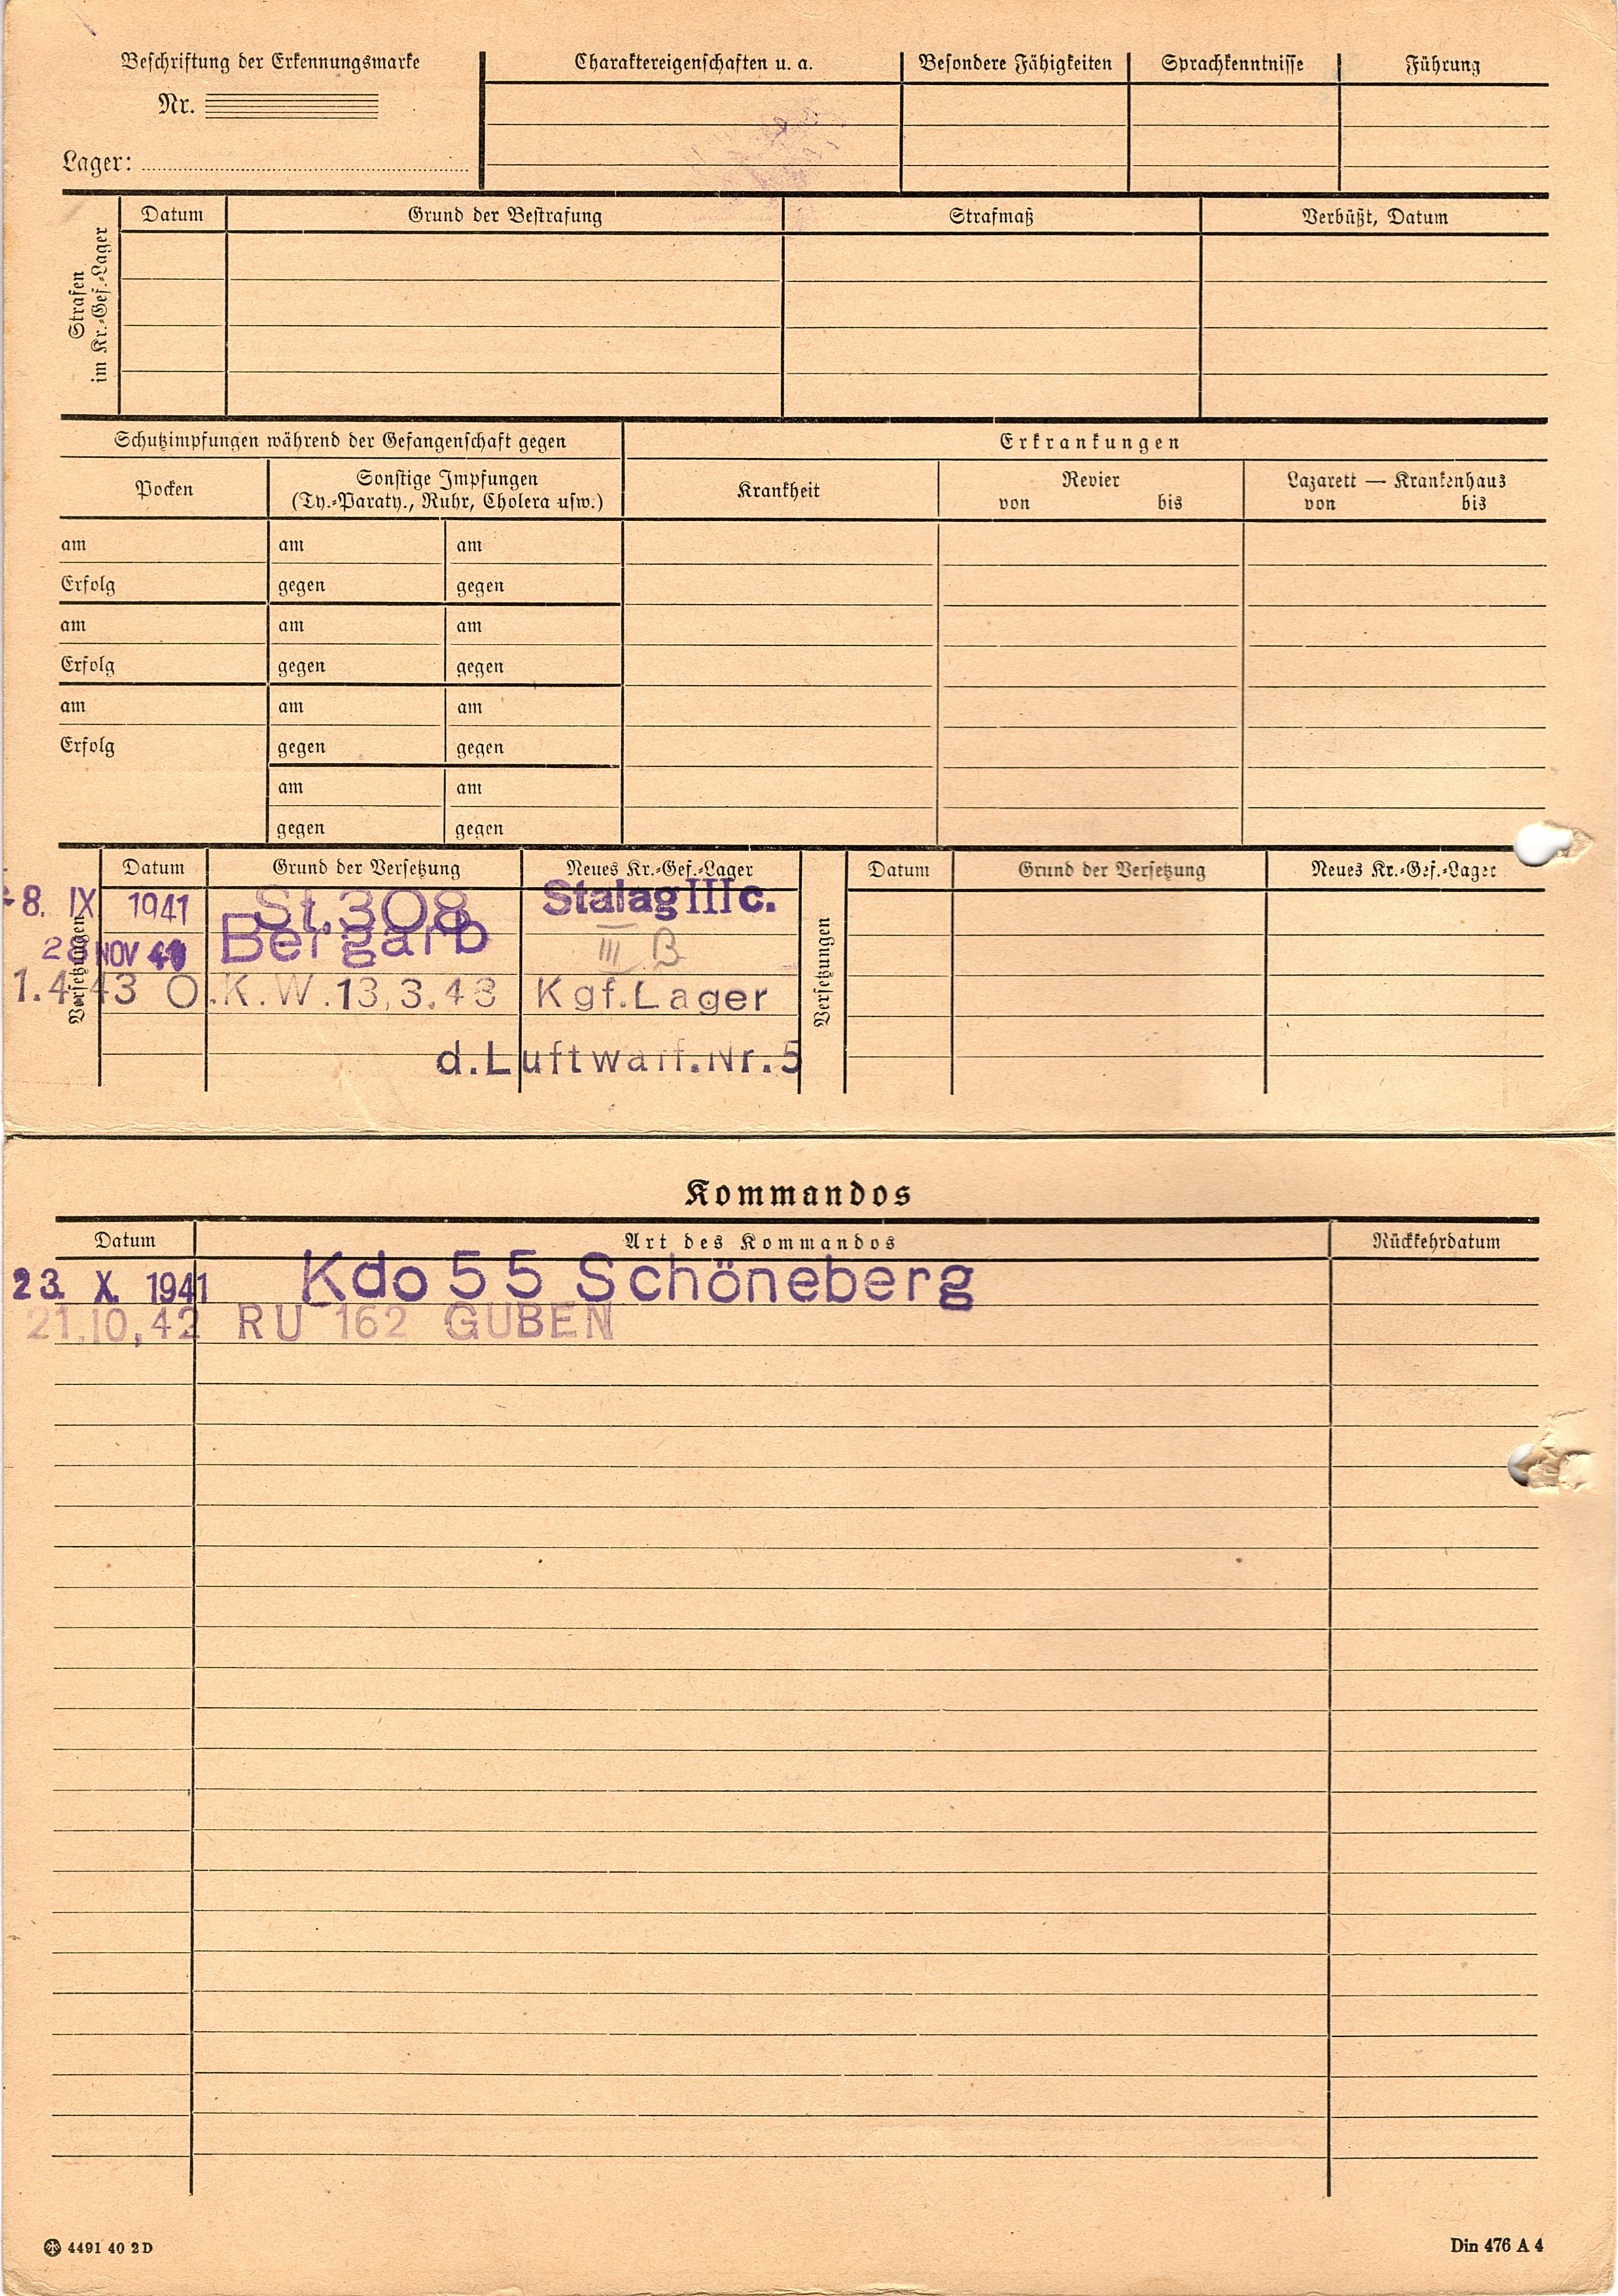 Beschriftung der Erkennungsmarke
Nr.
Lager:
Charaktereigenschaften u. a.
Besondere Fähigkeiten
Sprachkenntnisse
Führung
Strafen
im Kr.-Gef.-Lager
Datum
Grund der Bestrafung
Strafmaß
Verbüßt, Datum
Schutzimpfungen während der Gefangenschaft gegen
Erkrankungen
Pocken
Sonstige Impfungen
(Ty.-Paraty., Ruhr, Cholera usw.)
Krankheit
Revier
von bis
Lazarett — Krankenhaus
von bis
am am am
Erfolg gegen gegen
am am am
Erfolg gegen gegen
am am am
Erfolg gegen gegen
am am
gegen gegen
Versetzungen
Datum Grund der Versetzung Neues Kr.-Gef.-Lager
8. IX 1941 St.308 Stalag III c.
28 NOV Bergarb III B
1.4.43 O.K.W.13,3.43 Kgf.Lager
d.Luftwaff.Nr.5
Versetzungen
Datum Grund der Versetzung Neues Kr.-Gef.-Lager
Kommandos
Datum Art des Kommandos Rückkehrdatum
23. X. 1941 Kdo 55 Schöneberg
21.10,42 RU 162 GUBEN
4491 40 2 D
Din 476 A 4